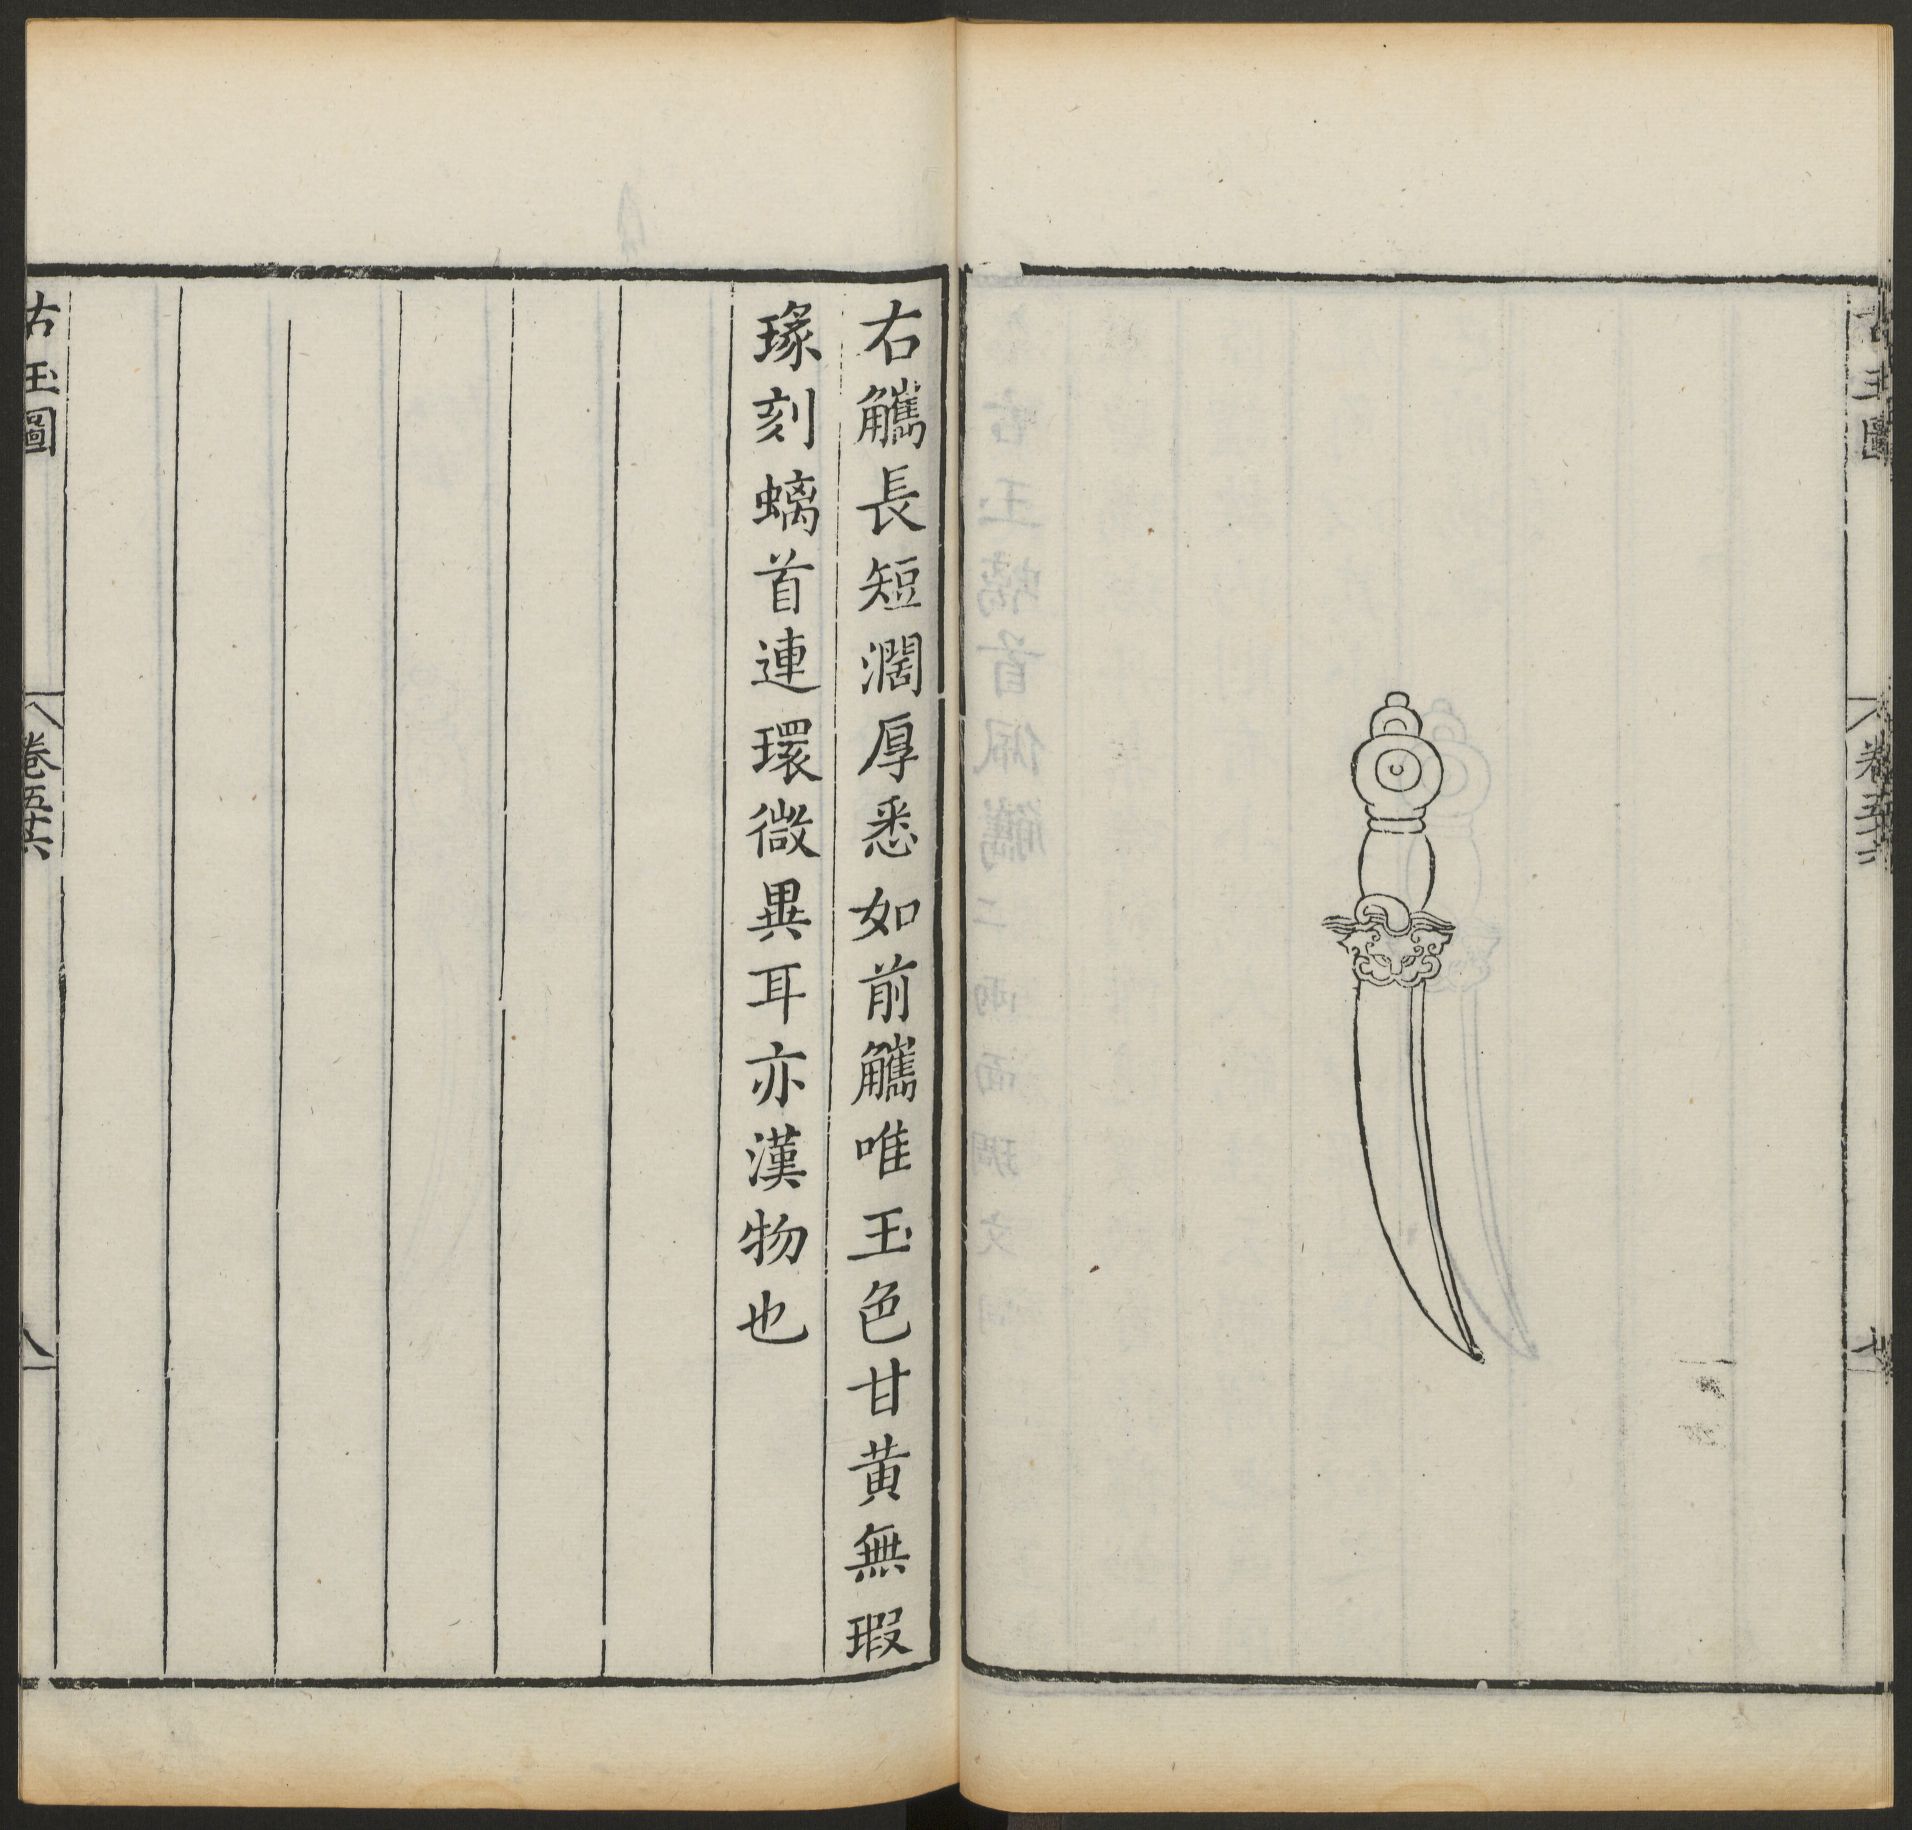 古玉圖
卷五十六
右觿長短濶厚悉如前觿唯玉色甘黃無瑕
瑑刻螭首連環微異耳亦漢物也
古玉圖
卷五十六
八